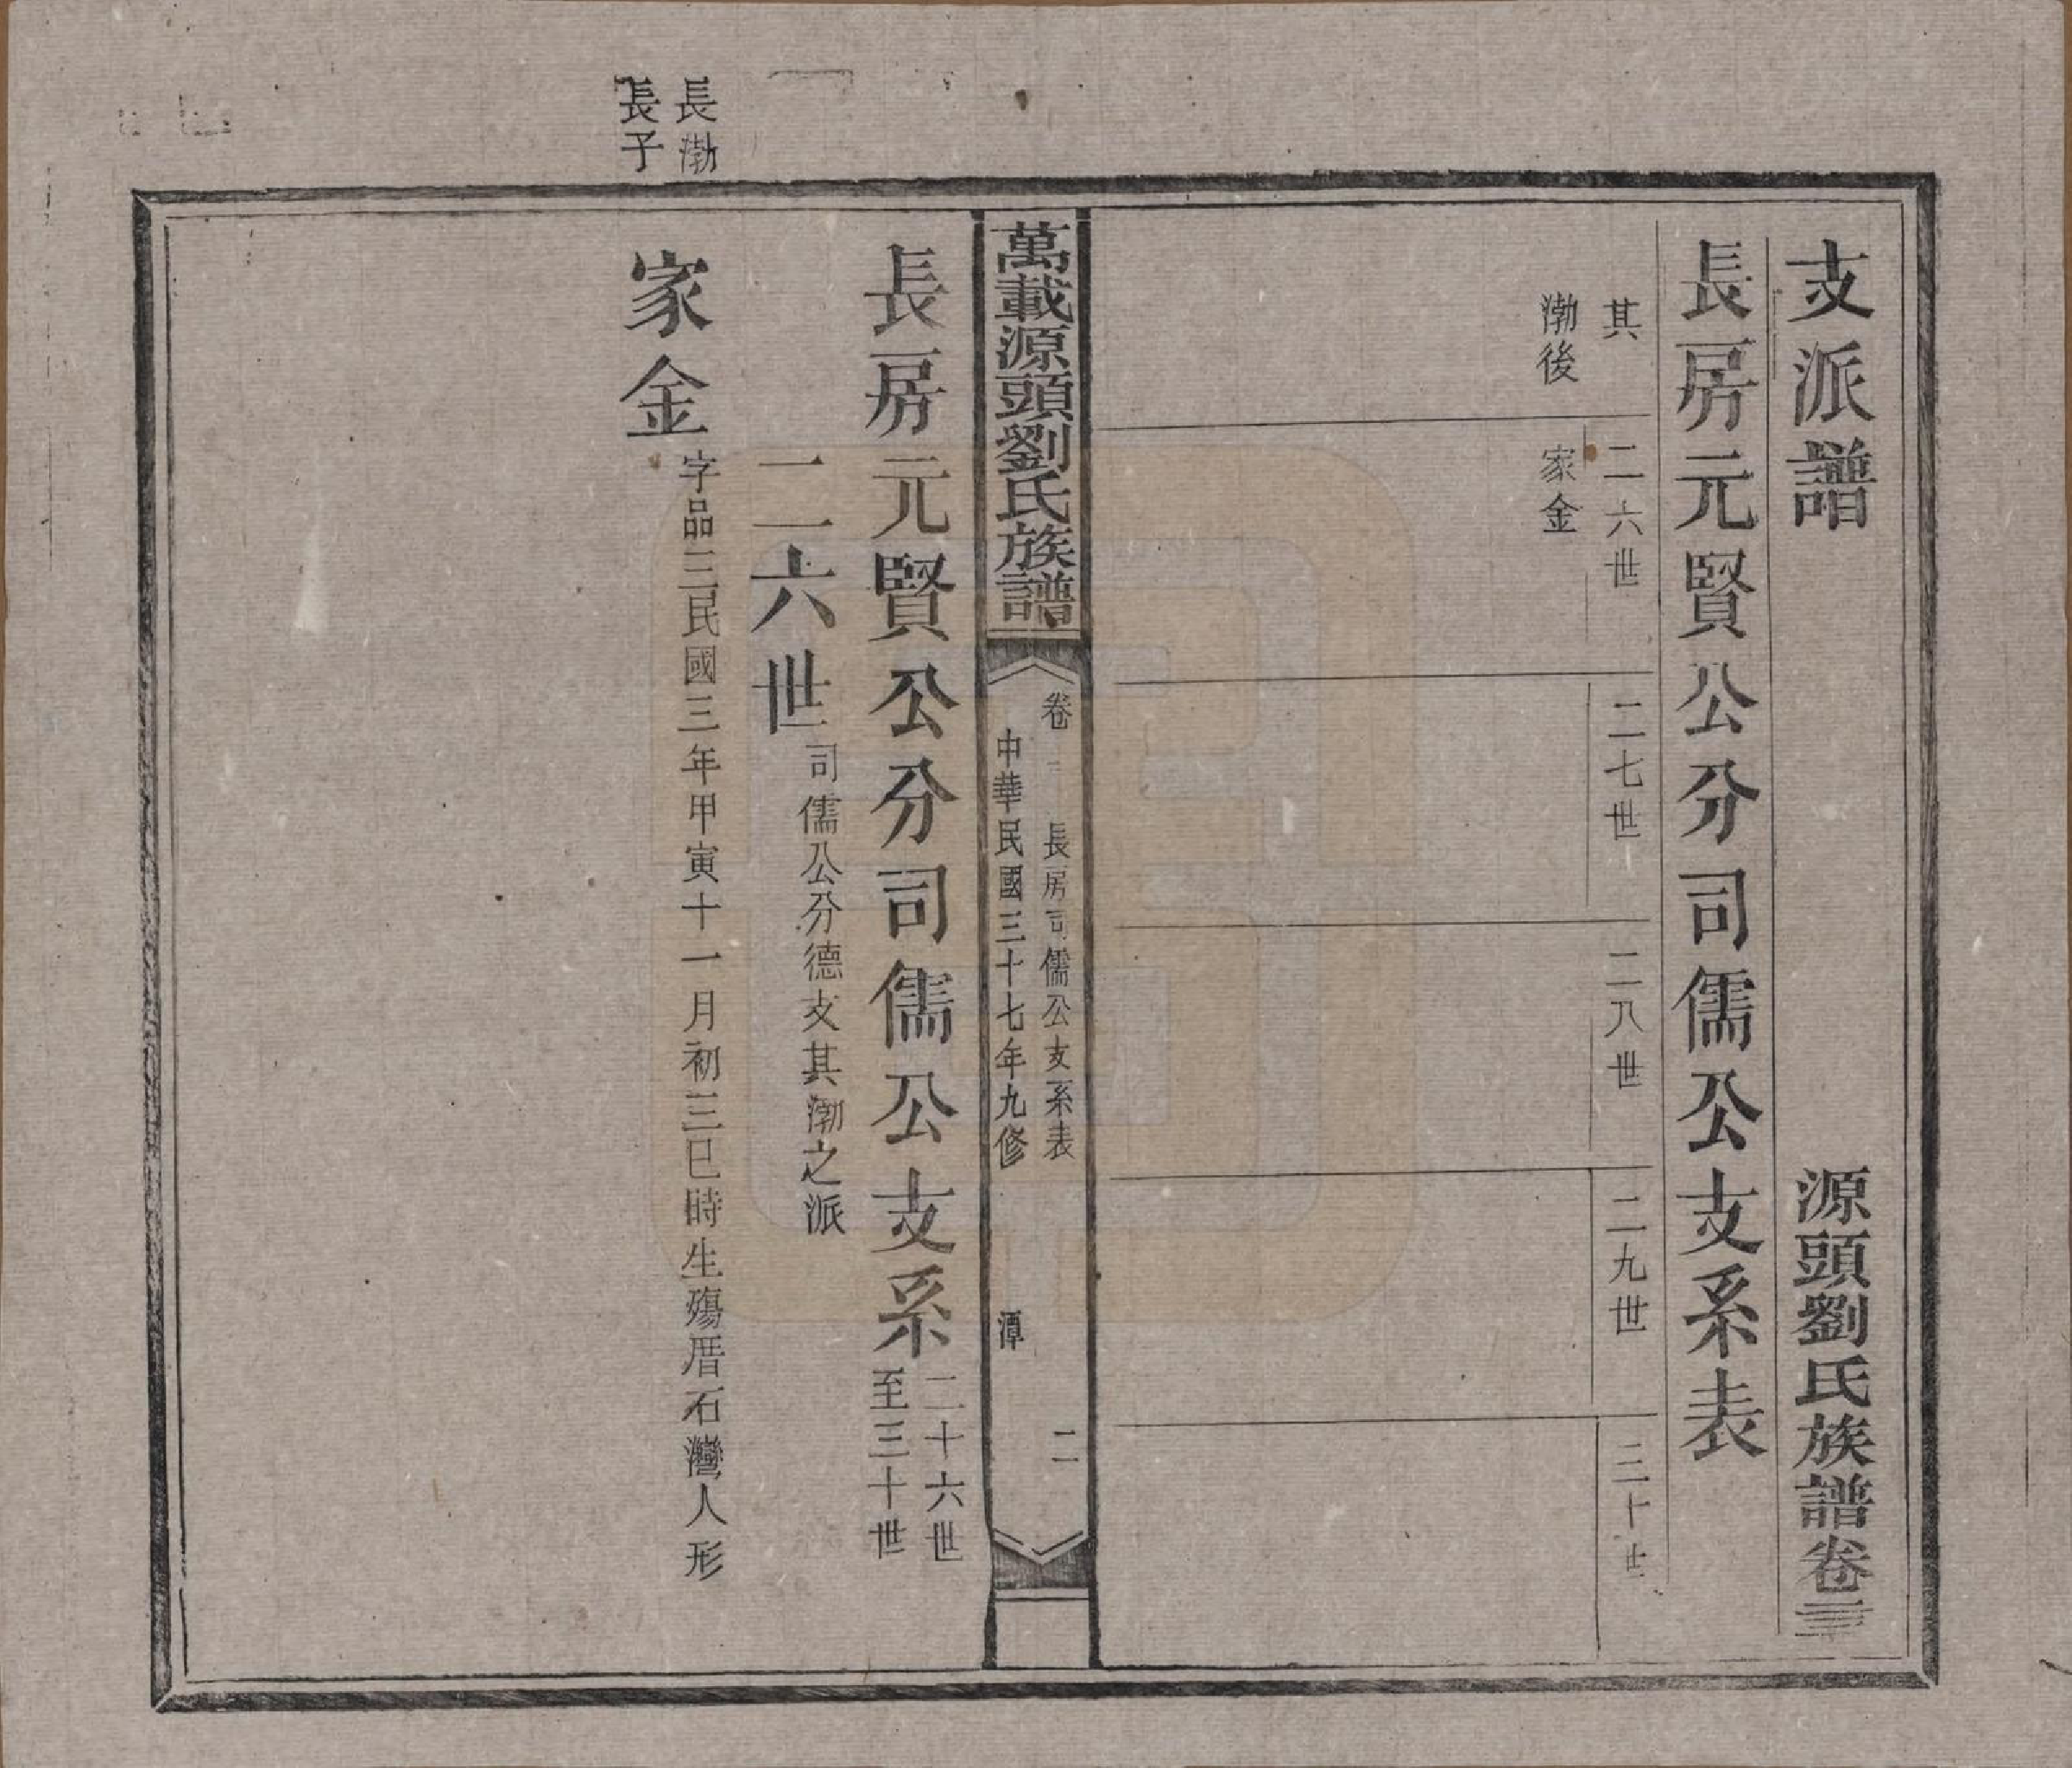 支派譜
源頭劉氏族譜卷三
長房元賢公分司儒公支系表
其
渤後
二六世
家金
二七世
二八世
二九世
三十世
萬載源頭劉氏族譜
卷
長房司儒公支系表
二
中華民國三十七年九修
潭
長房元賢公分司儒公支系
二十六世
至三十世
二六世
司儒公分德支其渤之派
長渤
長子
家金
字品三民國三年甲寅十一月初三巳時生殤厝石灣人形